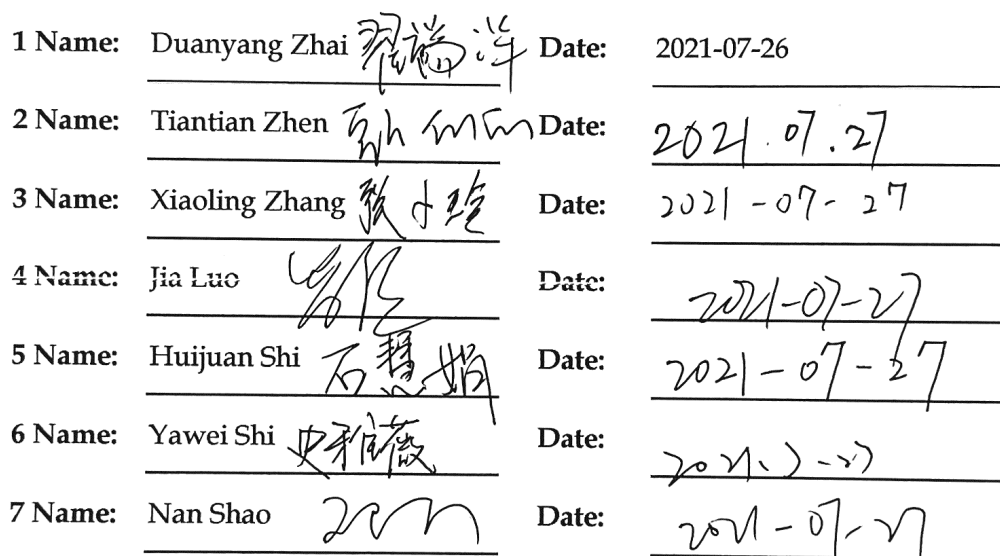 1 Name: Duanyang Zhai 翟端洋 Date: 2021-07-26
2 Name: Tiantian Zhen Date: 2021.07.27
3 Name: Xiaoling Zhang 张小玲 Date: 2021-07-27
4 Name: Jia Luo Date: 2021-07-27
5 Name: Huijuan Shi 石慧娟 Date: 2021-07-27
6 Name: Yawei Shi 史雅薇 Date:
7 Name: Nan Shao Date: 2021-07-27